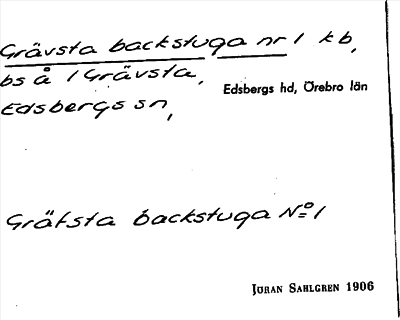 Grävsta backstuga nr 1 kb,
bs å 1 Grävsta,
Edsbergs hd, Örebro län
Edsbergs sn,
Gräfsta backstuga No 1
Jöran Sahlgren 1906